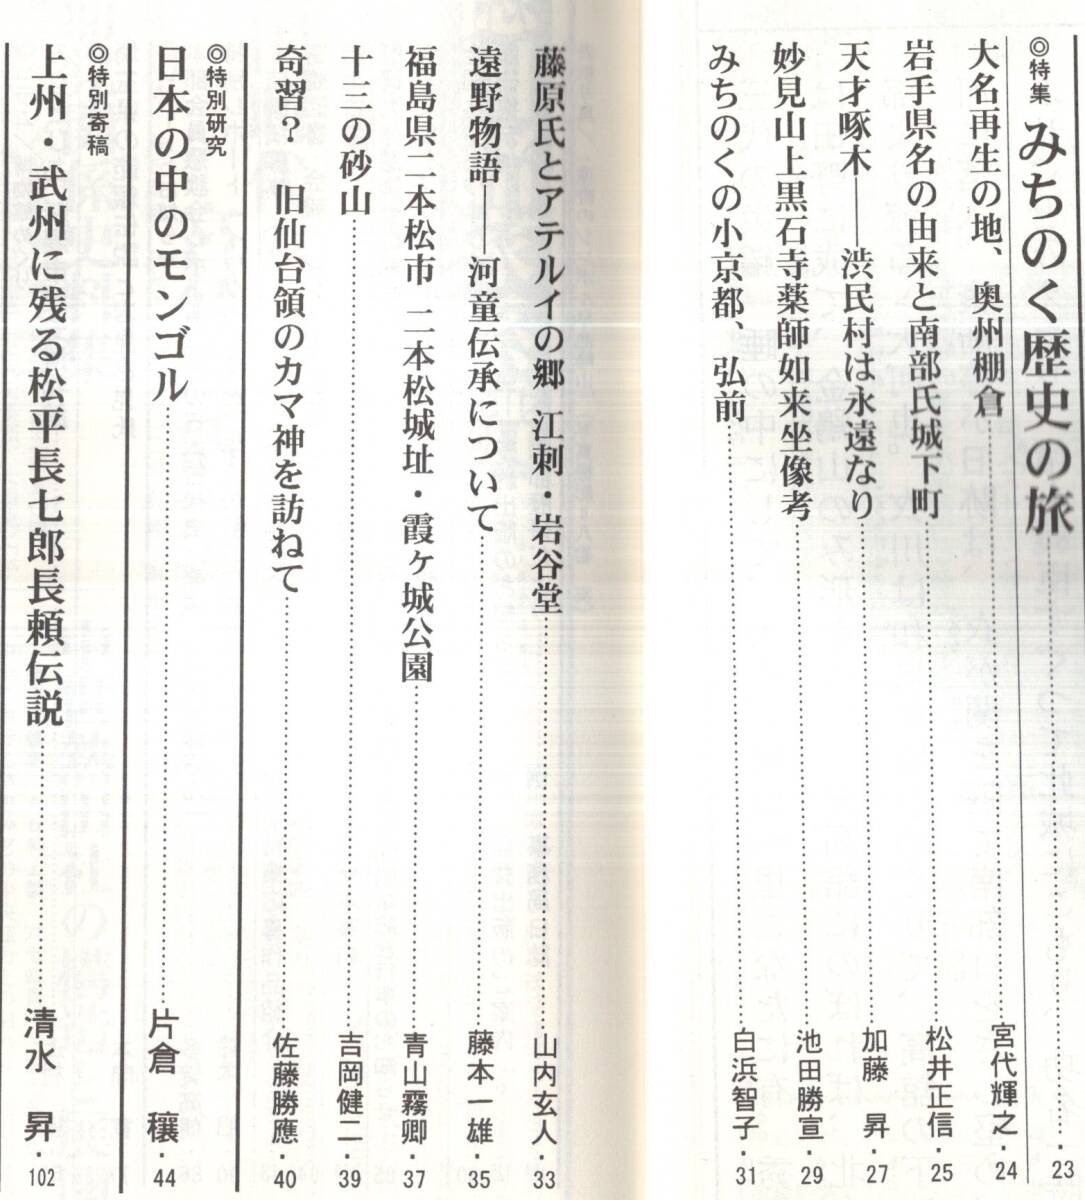 ◎特集 みちのく歴史の旅……23
大名再生の地、奥州棚倉……宮代輝之・24
岩手県名の由来と南部氏城下町……松井正信・25
天才啄木――渋民村は永遠なり……加藤　昇・27
妙見山上黒石寺薬師如来坐像考……池田勝宣・29
みちのくの小京都、弘前……白浜智子・31
藤原氏とアテルイの郷 江刺・岩谷堂……山内玄人・33
遠野物語――河童伝承について……藤本一雄・35
福島県二本松市 二本松城址・霞ヶ城公園……青山霧卿・37
十三の砂山……吉岡健二・39
奇習？　旧仙台領のカマ神を訪ねて……佐藤勝應・40
◎特別研究
日本の中のモンゴル……片倉　穰・44
◎特別寄稿
上州・武州に残る松平長七郎長頼伝説……清水　昇・102